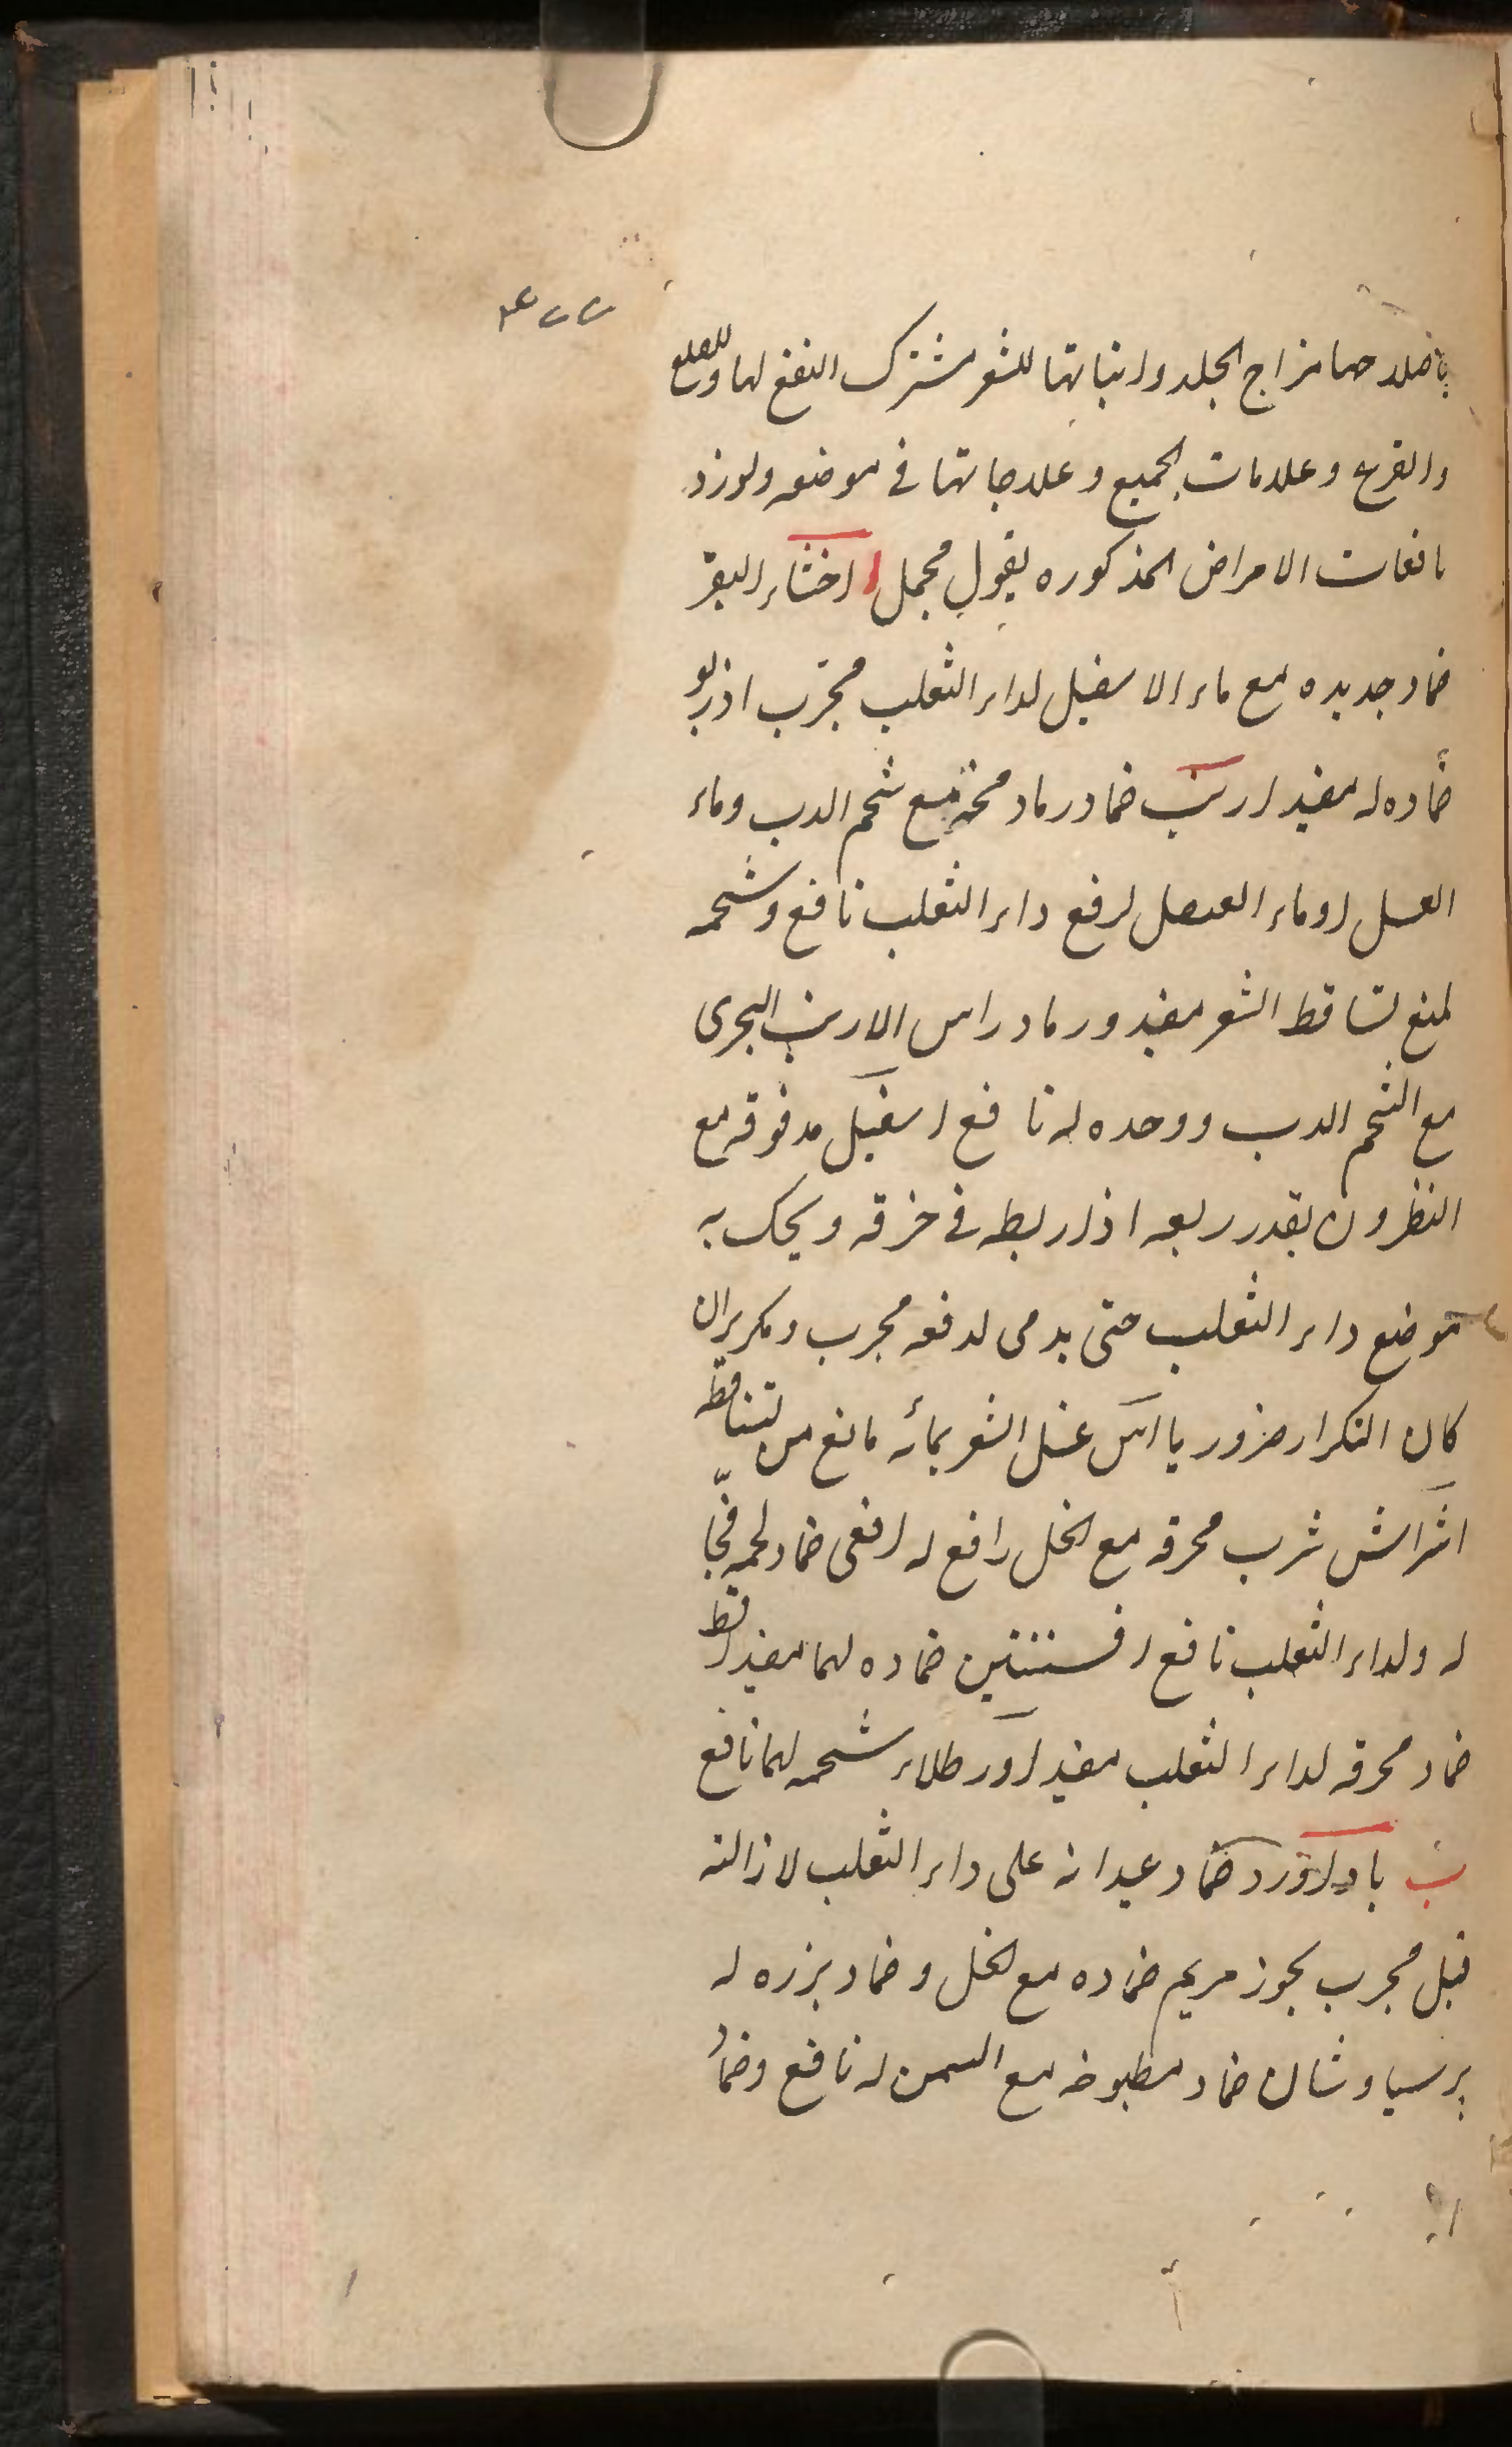 ۴۲۲
باصلاحها مزاج الجلد وانباتها للشعر مشترك النفع لهما وللصلع
والقرع وعلامات الجميع وعلاجاتها فى موضعه ولورد
نافعات الامراض المذكوره بقول مجمل ا اخثاء البقر
ضماد جديده مع ماء الاسقيل لداء الثعلب مجرّب اذربو
ضماده له مفيد ارنب ضماد رماد مخه مع شحم الدب وماء
العسل اوماء العنصل لرفع داء الثعلب نافع وشحمه
لمنع تساقط الشعر مفيد ورماد راس الارنب البحرى
مع الشحم الدب ووحده له نافع اسقيل مدقوقه مع
النطرون بقدر ربعه اذا ربطه فى خرقه ويحك به
موضع داء الثعلب حتى يدمى لدفعه مجرب ومكرر ان
كان التكرار ضرور يا آس غسل الشعر بمائه مانع من تساقطه
اشراش شرب محرقه مع الخل رافع له افعى ضماد لحمه فجّا
له ولداء الثعلب نافع افسنتين ضماده لهما مفيد اقط
ضماد محرقه لداء الثعلب مفيد اوز طلاء شحمه لهما نافع
ب باداورد ضماد عيدانه على داء الثعلب لازالته
قيل مجرب بخور مريم ضماده مع الخل وضماد بزره له
برسياوشان ضماد مطبوخه مع السمن له نافع وضماد